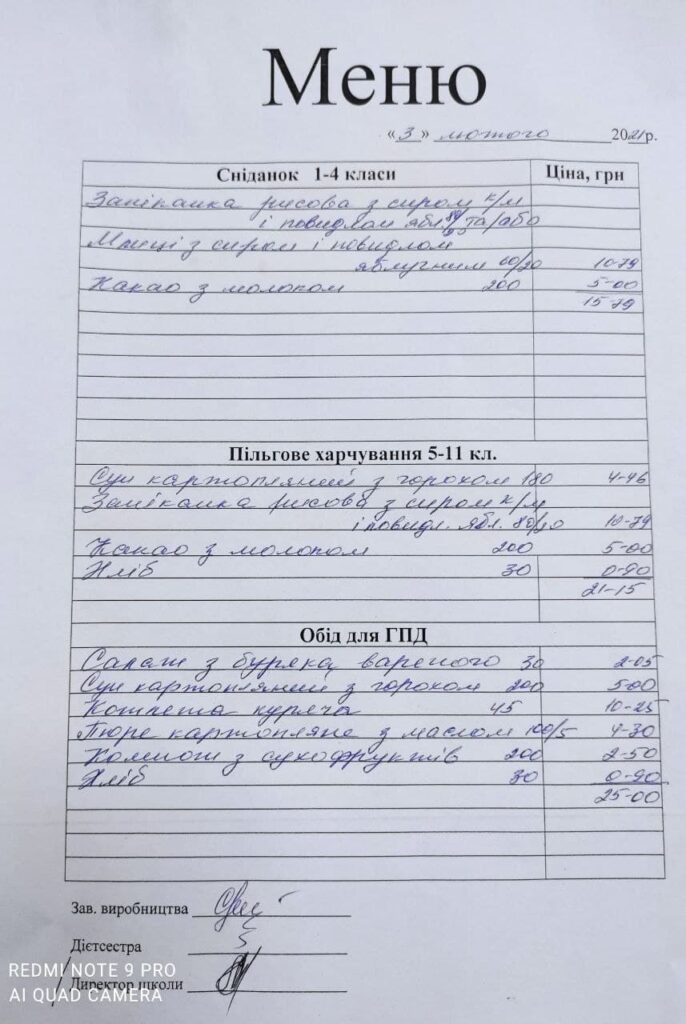 Меню
«3» лютого 2021р.
Сніданок 1-4 класи Ціна, грн
Запіканка рисова з сиром к/м
і повидлом ябл. 80/ та/або
Млинці з сиром і повидлом
яблучним 60/20 10-79
Какао з молоком 200 5-00
15-79
Пільгове харчування 5-11 кл.
Суп картопляний з горохом 180 4-46
Запіканка рисова з сиром к/м
і повидл. ябл. 80/10 10-79
Какао з молоком 200 5-00
Хліб 30 0-90
21-15
Обід для ГПД
Салат з буряка вареного 30 2-05
Суп картопляний з горохом 200 5-00
Котлета куряча 45 10-25
Пюре картопляне з маслом 100/5 4-30
Компот з сухофруктів 200 2-50
Хліб 30 0-90
25-00
Зав. виробництва
Дієтсестра
Директор школи
REDMI NOTE 9 PRO
AI QUAD CAMERA